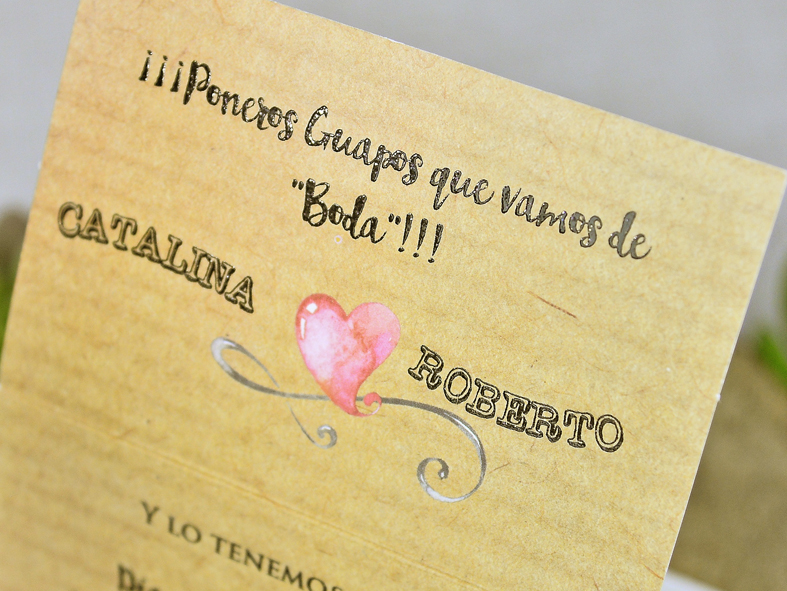 ¡¡¡Poneros Guapos que vamos de
"Boda"!!!
CATALINA
ROBERTO
Y LO TENEMOS